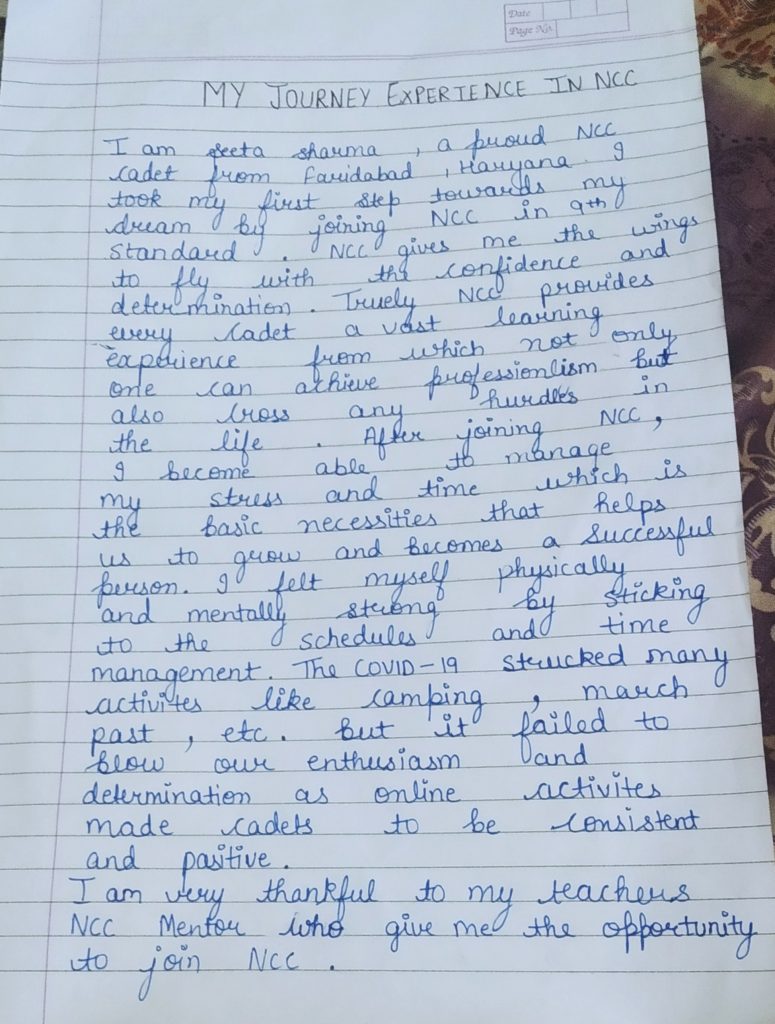 Date
Page No.
MY JOURNEY EXPERIENCE IN NCC
I am geeta sharma , a proud NCC
cadet from Faridabad , Haryana. I
took my first step towards my
dream by joining NCC in 9th
standard . NCC gives me the wings
to fly with the confidence and
determination. Truely NCC provides
every cadet a vast learning
experience from which not only
one can achieve professionlism but
also cross any hurdles in
the life . After joining NCC,
I become able to manage
my stress and time which is
the basic necessities that helps
us to grow and becomes a successful
person. I felt myself physically
and mentally strong by sticking
to the schedules and time
management. The COVID-19 strucked many
activites like camping , march
past , etc. but it failed to
blow our enthusiasm and
determination as online activites
made cadets to be consistent
and pasitive.
I am very thankful to my teachers
NCC Mentor who give me the opportunity
to join NCC .